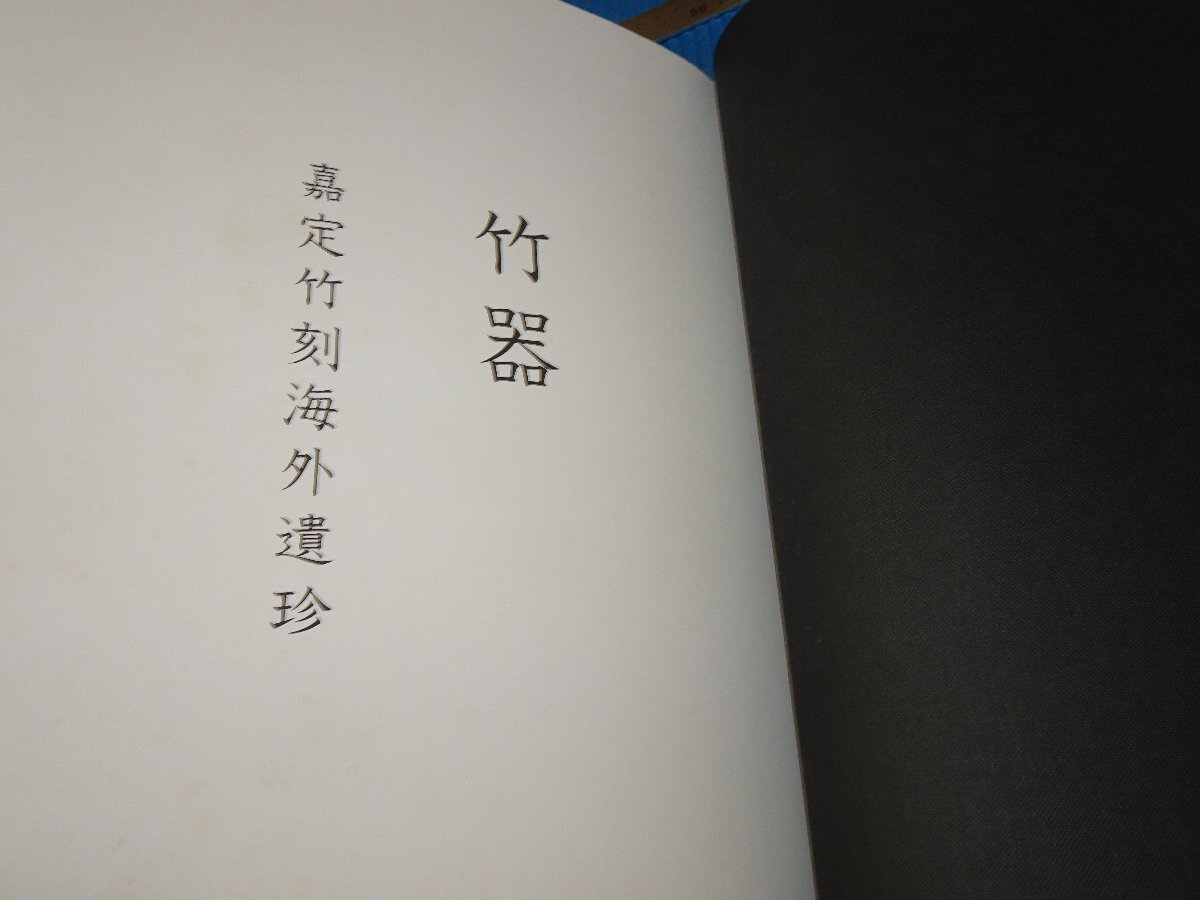 竹器
嘉定竹刻海外遺珍
50